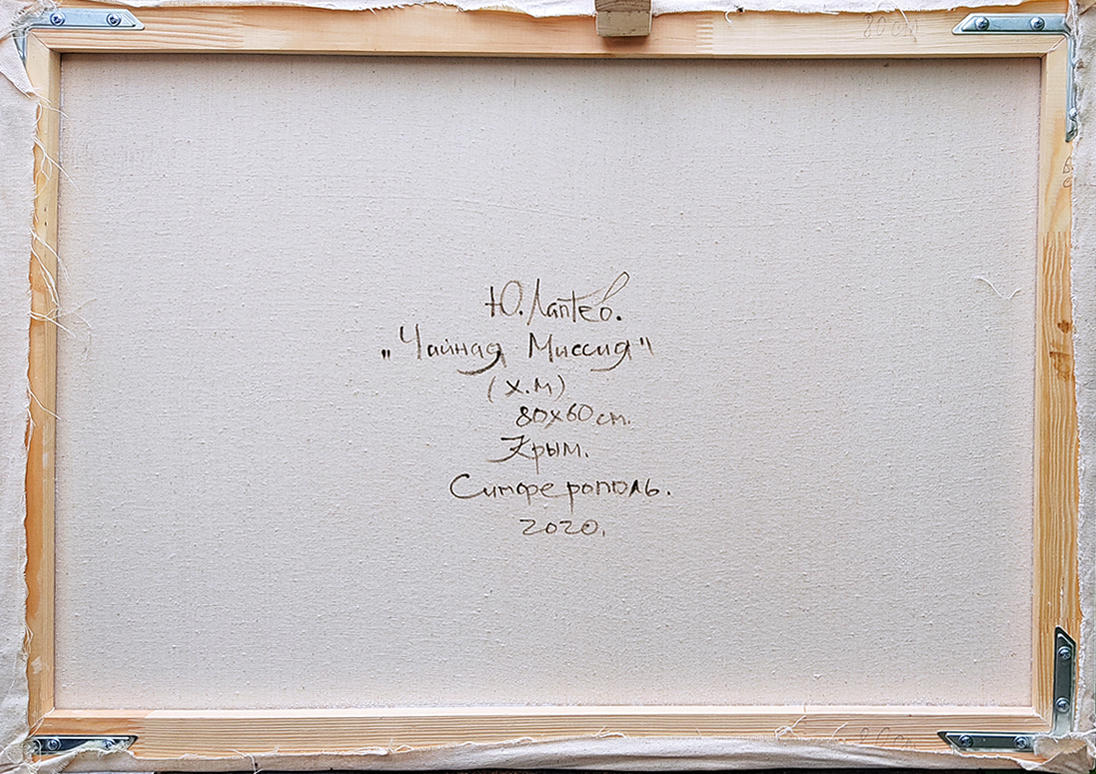 80 cm
Ю. Лаптев.
„Чайная Миссия"
(х.м)
80х60 см.
Крым.
Симферополь.
2020.